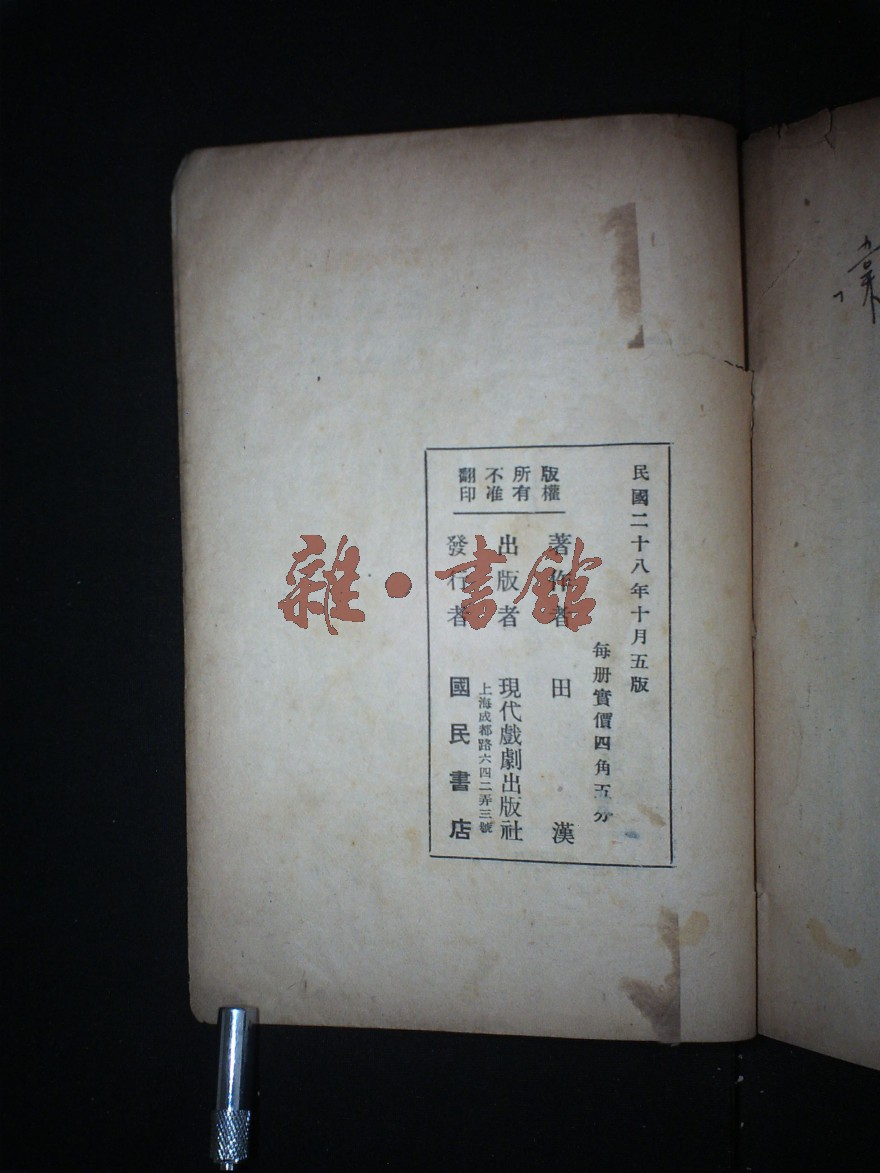 民國二十八年十月五版
每册實價四角五分
版權
所有
不准
翻印
著作者 田漢
出版者 現代戲劇出版社
上海成都路六四二弄三號
發行者 國民書店
雜·書館